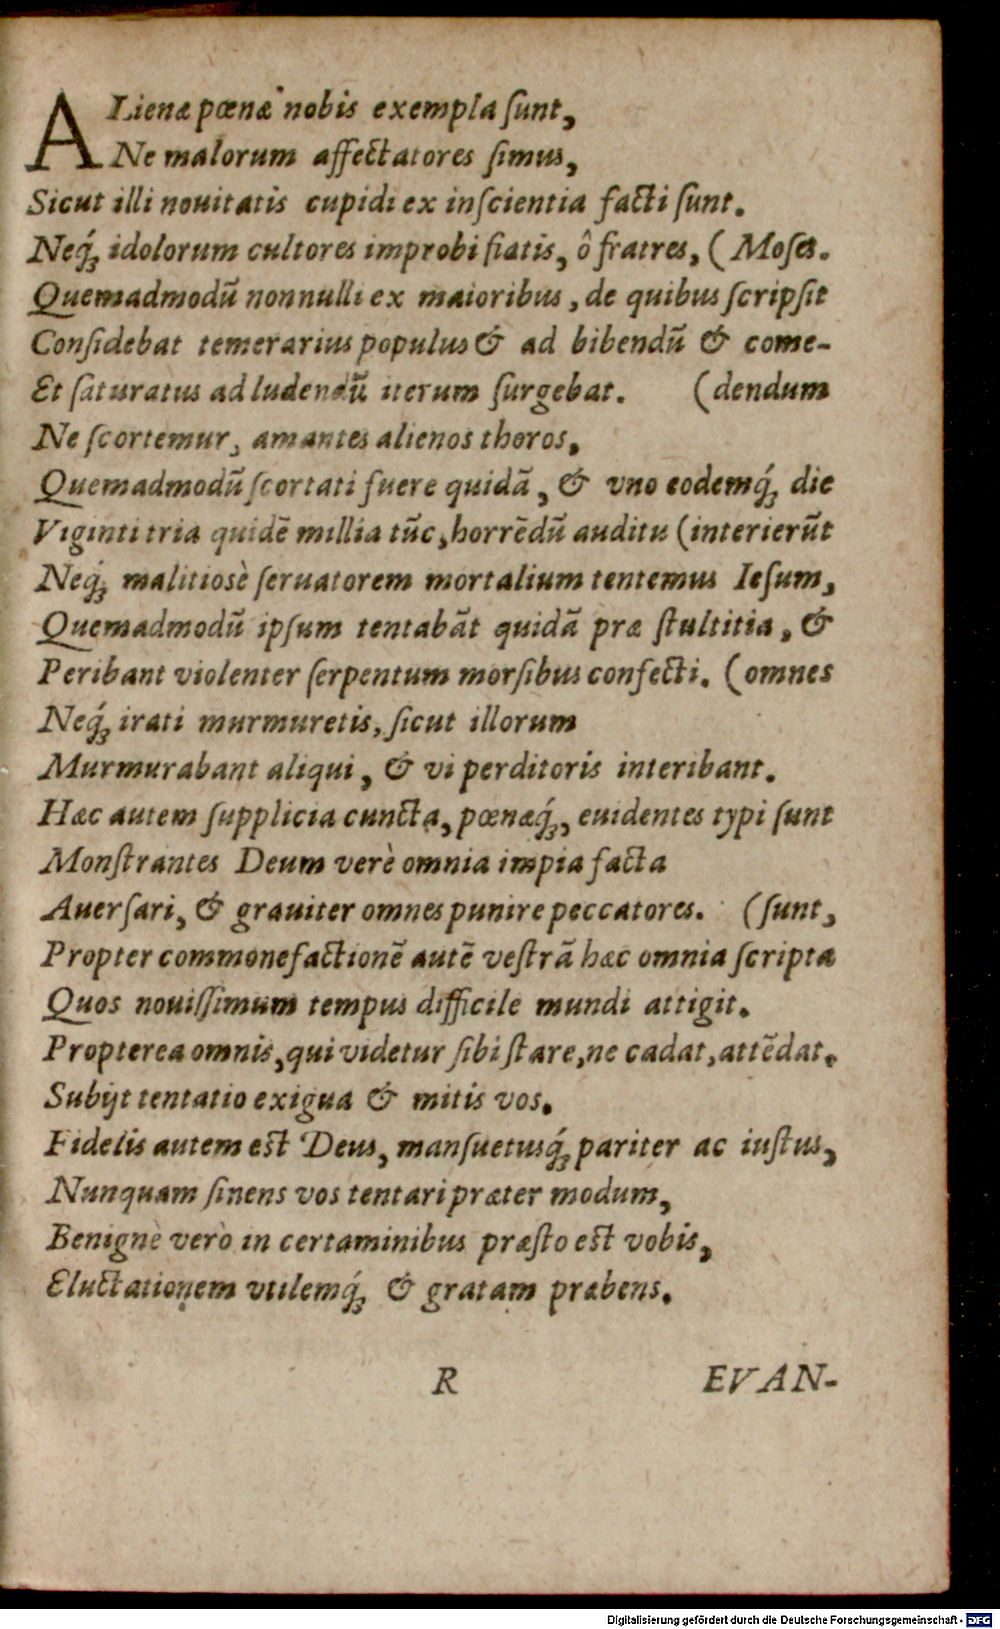 ALienæ pœnæ nobis exempla ſunt,
Ne malorum affectatores ſimus,
Sicut illi nouitatis cupidi ex inſcientia facti ſunt.
Neq́; idolorum cultores improbi fiatis, ô fratres, ( Moſes.
Quemadmodũ nonnulli ex maioribus, de quibus ſcripſit
Conſidebat temerarius populus & ad bibendũ & come-
Et ſaturatus ad ludendũ iterum ſurgebat. (dendum
Ne ſcortemur, amantes alienos thoros.
Quemadmodũ ſcortati fuere quidã, & vno eodemq́; die
Viginti tria quidẽ millia tũc, horrẽdũ auditu (interierũt
Neq́; malitiosè ſeruatorem mortalium tentemus Ieſum,
Quemadmodũ ipſum tentabãt quidã præ ſtultitia, &
Peribant violenter ſerpentum morſibus confecti. (omnes
Neq́; irati murmuretis, ſicut illorum
Murmurabant aliqui, & vi perditoris interibant.
Hæc autem ſupplicia cuncta, pœnæq́;, euidentes typi ſunt
Monſtrantes Deum verè omnia impia facta
Auerſari, & grauiter omnes punire peccatores. (ſunt,
Propter commonefactionẽ autẽ veſtrã hæc omnia ſcripta
Quos nouiſſimum tempus difficile mundi attigit.
Propterea omnis, qui videtur ſibi ſtare, ne cadat, attẽdat.
Subijt tentatio exigua & mitis vos.
Fidelis autem eſt Deus, manſuetusq́; pariter ac iuſtus,
Nunquam ſinens vos tentari præter modum,
Benignè verò in certaminibus præſto eſt vobis,
Eluctationem vtilemq́; & gratam præbens.
R EVAN-
Digitalisierung gefördert durch die Deutsche Forschungsgemeinschaft - DFG